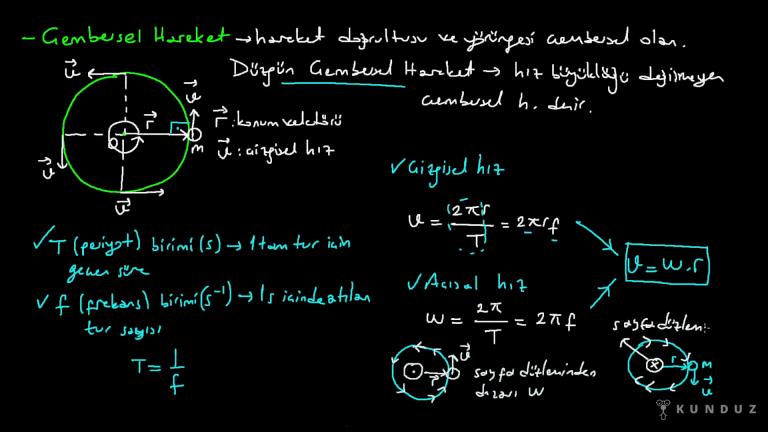 - Çembersel Hareket → hareket doğrultusu ve yörüngesi çembersel olan.
Düzgün Çembersel Hareket → hız büyüklüğü değişmeyen
çembersel h. denir.
v⃗
v⃗
r⃗
O
m
v⃗
v⃗
r⃗ : konum vektörü
v⃗ : çizgisel hız
✓ T (periyot) birimi (s) → 1 tam tur için
geçen süre
✓ f (frekans) birimi (s⁻¹) → 1 s içinde atılan
tur sayısı
T = 1/f
✓ Çizgisel hız
v = 2πr/T = 2πrf
✓ Açısal hız
w = 2π/T = 2πf
v = w.r
v⃗
r⃗
sayfa düzleminden
dışarı w
sayfa düzlemi
r
m
v⃗
KUNDUZ